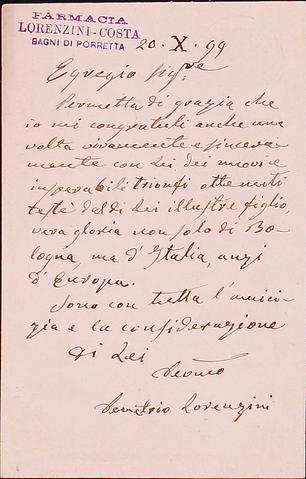 FARMACIA
LORENZINI-COSTA
BAGNI DI PORRETTA
20. X. 99
Egregio Sigre.
Permetta di grazia che
io mi congratuli anche una
volta vivamente e sincera-
mente con Lei dei nuovi e
insperabili trionfi ottenuti
testè dal di Lei illustre figlio,
vera gloria non solo di Bo-
logna, ma d'Italia, anzi
d'Europa.
Sono con tutta l'amici-
zia e la considerazione
di Lei
Demetrio Lorenzini